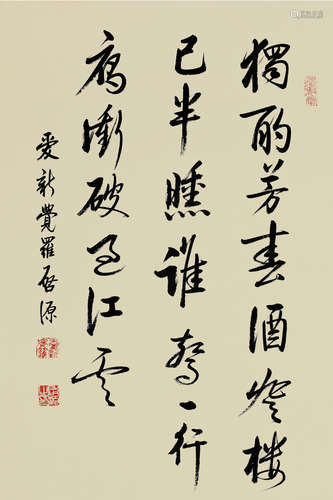 獨酌芳春酒登樓
已半曛誰驚一行
雁衝破過江雲
愛新覺羅啟源